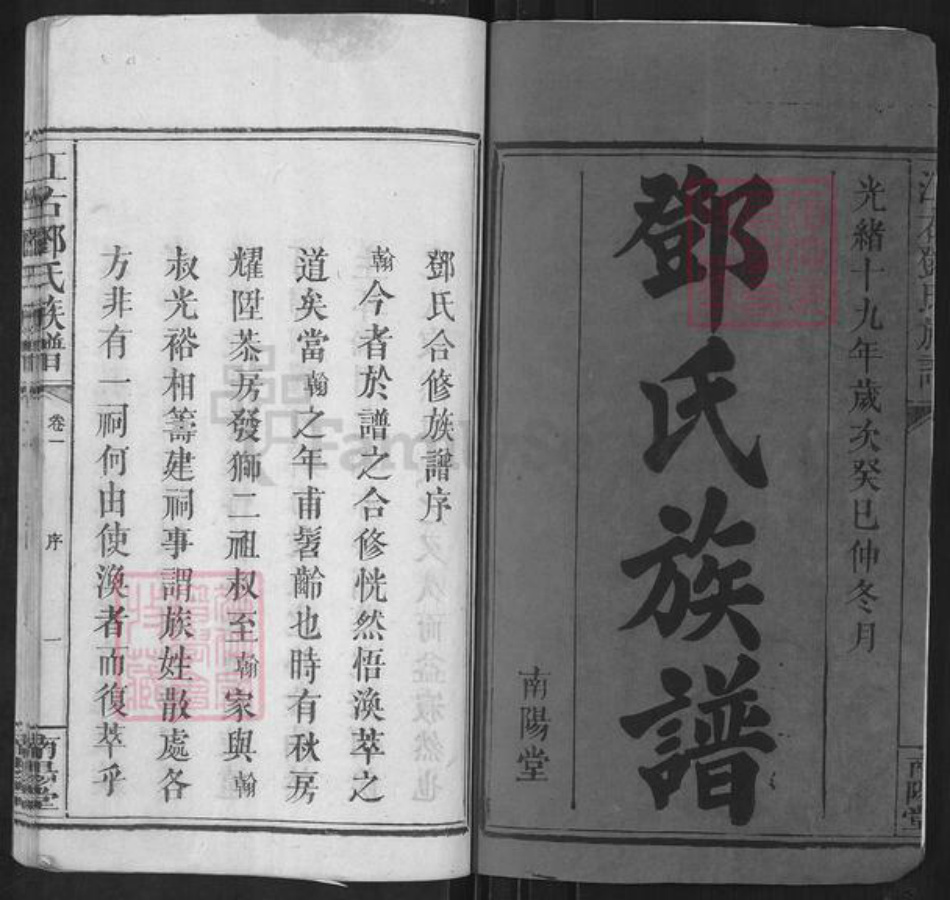 光緒十九年歲次癸巳仲冬月
鄧氏族譜
南陽堂
南陽堂
鄧氏合修族譜序
翰今者於譜之合修恍然悟渙萃之
道矣當翰之年甫髫齡也時有秋房
耀陞恭房發獅二祖叔至翰家與翰
叔光裕相籌建祠事謂族姓散處各
方非有一祠何由使渙者而復萃乎
鄧氏族譜
卷一
序
一
南陽堂